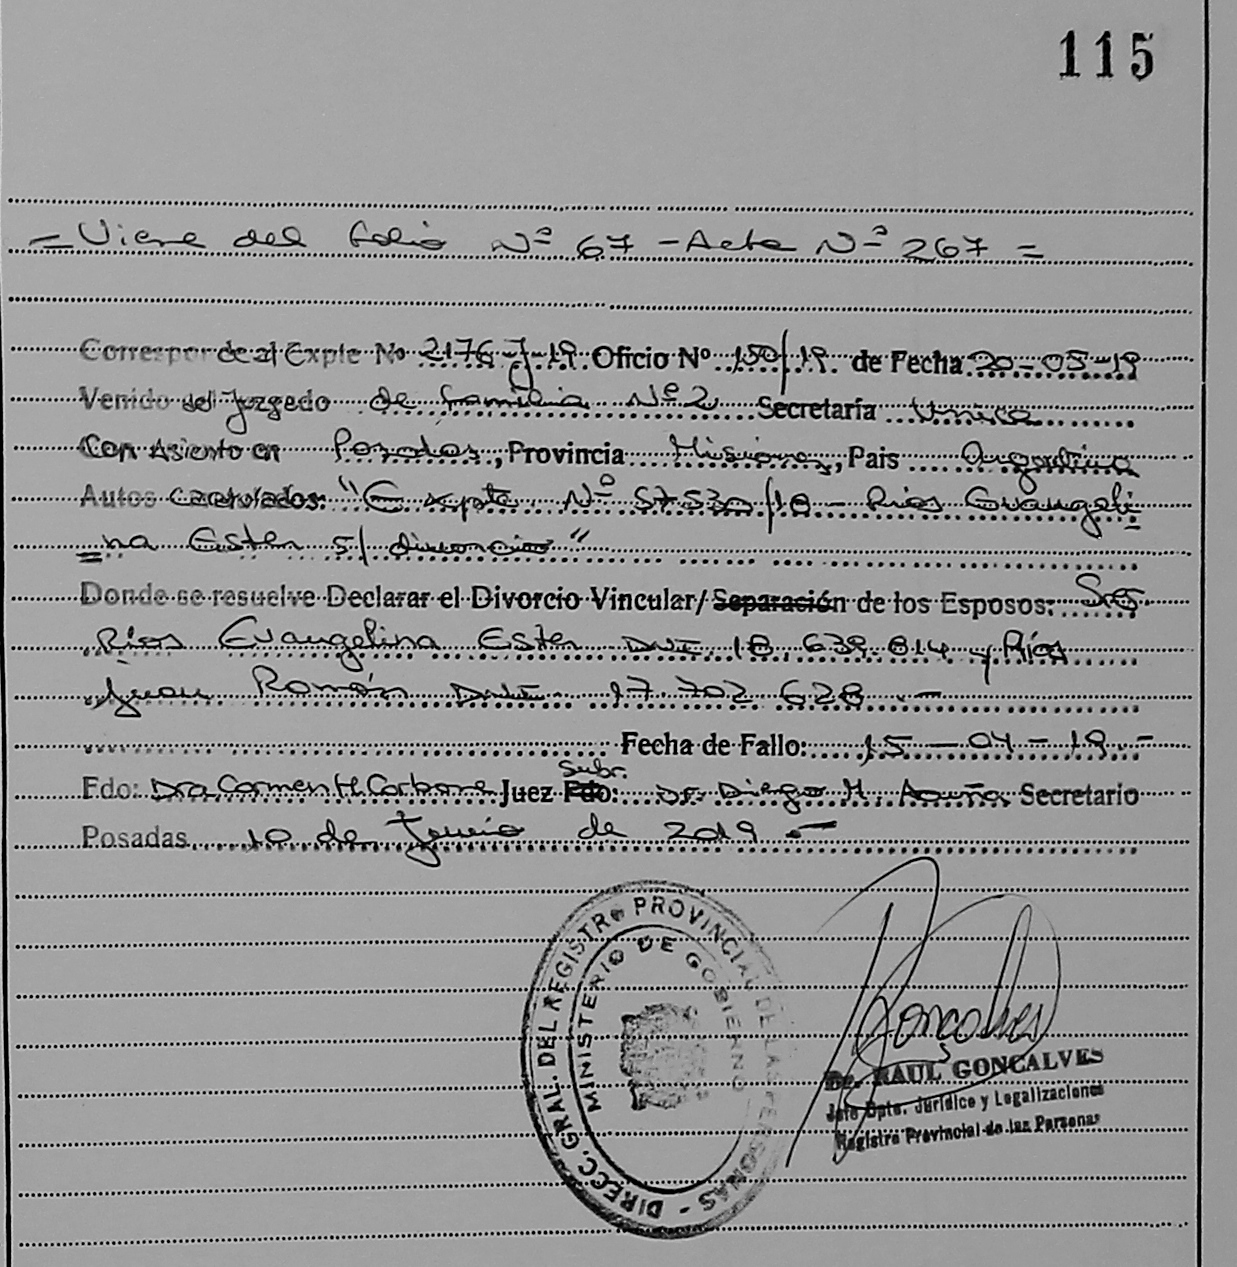 115
= Viene del folio Nº 67 - Acta Nº 267 =
Corresponde al Expte Nº 2176-J-19 Oficio Nº 150/19 de Fecha 20-05-19
Venido del Juzgado de familia Nº 2 Secretaría Unica
Con Asiento en Posadas, Provincia Misiones, Pais Argentina
Autos Caratulados: "Expte Nº 57530/18 - Rios Evangeli
=na Ester s/ divorcio"
Donde se resuelve Declarar el Divorcio Vincular/Separación de los Esposos: Sres.
Ríos Evangelina Ester DNI. 18.639.814 y Ríos
Juan Ramón DNI. 17.702.628.-
Fecha de Fallo: 15-04-19.-
Subr.
Fdo: Dra Carmen H. Carbone Juez Fdo: Dr. Diego M. Acuña Secretario
Posadas 10 de Junio de 2019.-
DIRECC. GRAL. DEL REGISTRO PROVINCIAL DE LAS PERSONAS -
MINISTERIO DE GOBIERNO
Dr. RAUL GONCALVES
Jefe Dpto. Jurídico y Legalizaciones
Registro Provincial de las Personas